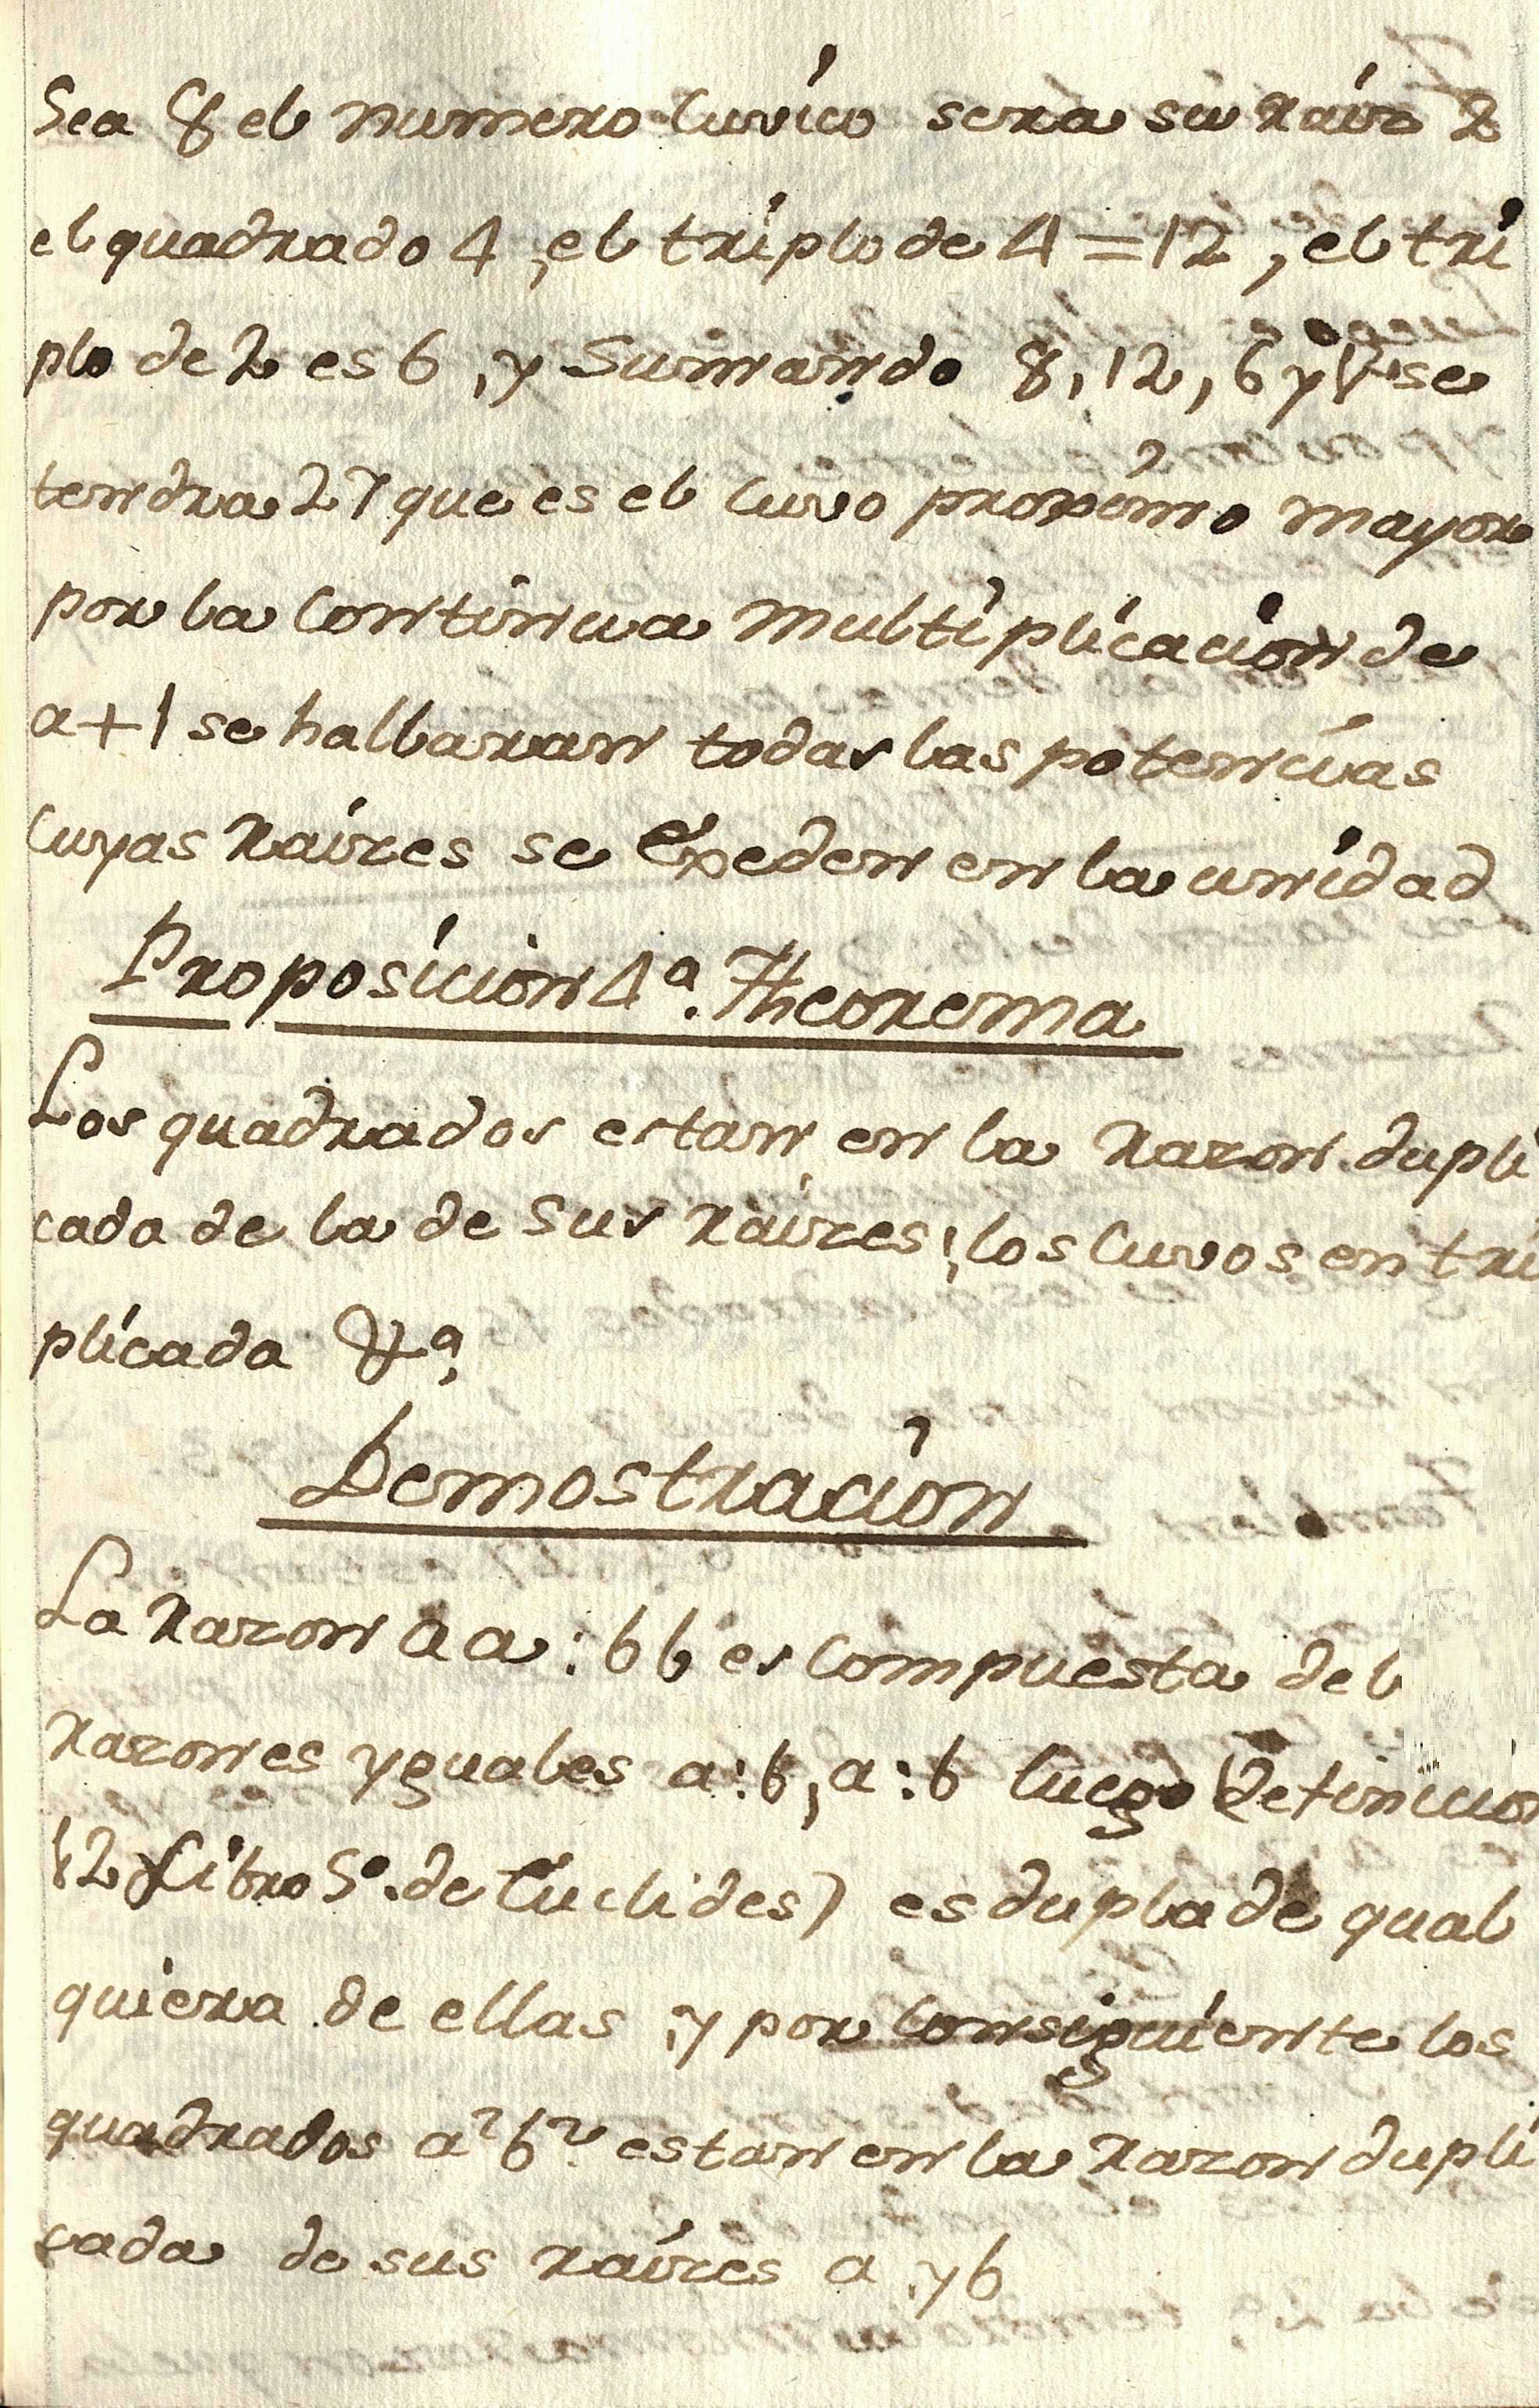 Sea 8 el numero Cuvico sera su raiz 2
el quadrado 4, el triplo de 4=12, el tri
plo de 2 es 6, y Sumando 8, 12, 6 y 1 se
tendra 27 que es el Cuvo proximo mayor
por la Continua Multiplicacion de
a+1 se hallaran todas las potencias
Cuyas Raizes se Exeden en la unidad
Proposicion 4ª. Theorema
Los quadrados estan en la Razon dupli
cada de la de sus Raizes; los Cuvos en tri
plicada &ª
Demostracion
La Razon aa: bb es Compuesta de
Razones yguales a:b, a:b luego (definicion
12 Libro 5º. de Euclides) es dupla de qual
quiera de ellas, y por Consiguiente los
quadrados a² b² estan en la Razon dupli
cada de sus Raizes a, y b